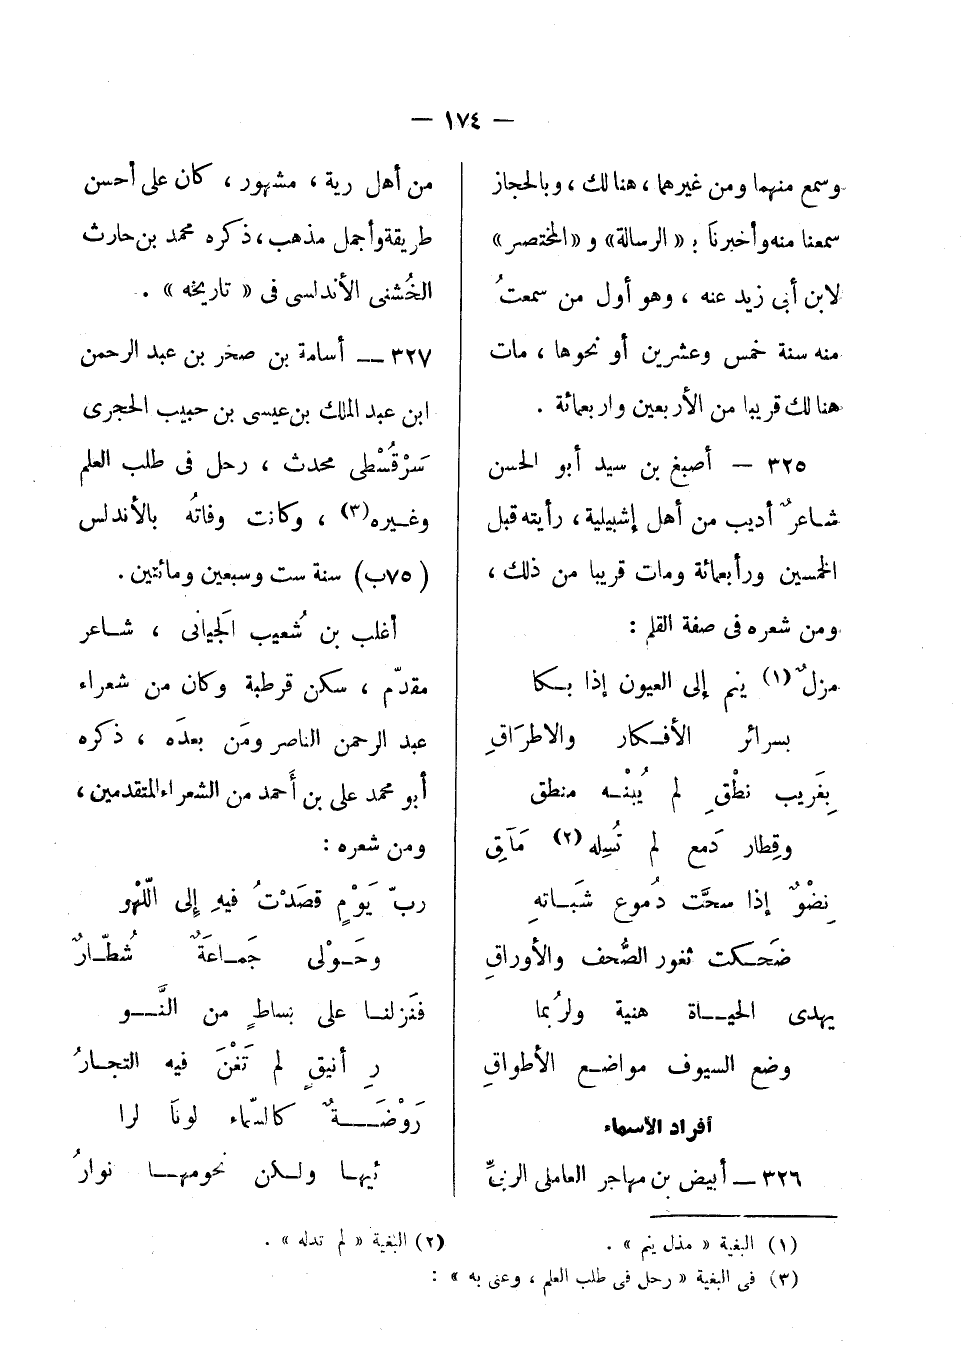 — ١٧٤ —
وسمع منهما ومن غيرهما ، هنالك ، وبالحجاز
سمعنا منه وأخبرنا بـ « الرسالة» و «المختصر»
لابن أبى زيد عنه ، وهو أول من سمعتُ
منه سنة خمس وعشرين أو نحوها ، مات
هنالك قريبا من الأربعين واربعمائة .
٣٢٥ — أصبغ بن سيد أبو الحسن
شاعرٌ أديب من أهل إشبيلية ، رأيته قبل
الخمسين ورأبعمائة ومات قريبا من ذلك ،
ومن شعره فى صفة القلم :
مزلٌ (١) ينم إلى العيون إذا بكا
بسرائر الأفكار والاطرَاقِ
بِغَريب نطْقٍ لم يُبنْه منطق
وقِطار دَمع لم تُسِله (٢) مَآقِ
نِضْوٌ إذا سحَّت دُموع شَبَاتهِ
ضَحكت ثغور الصُّحف والأوراقِ
يهدى الحياة هنية ولرُبما
وضع السيوف مواضع الأطواقِ
أفراد الأسماء
٣٢٦ — أبيض بن مهاجر العاملى الربىِّ
من أهل رية ، مشهور ، كان على أحسن
طريقة وأجمل مذهب ، ذكره محمد بن حارث
الخُشنى الأندلسى فى « تاريخه » .
٣٢٧ — أسامة بن صخر بن عبد الرحمن
ابن عبد الملك بن عيسى بن حبيب الحجرى
سَرْقُسْطى محدث ، رحل فى طلب العلم
وغيره(٣) ، وكانت وفاتُه بالأندلس
(٧٥ب) سنة ست وسبعين ومائتين .
أغلب بن شُعيب الَجيانى ، شاعر
مقدّم ، سكن قرطبة وكان من شعراء
عبد الرحمن الناصر ومَن بعدَه ، ذكره
أبو محمد على بن أَحمد من الشعراء المتقدمين ،
ومن شعره :
ربّ يَوْمٍ قصَدْتُ فيهِ إِلى الّلهْو
وحَوْلى جَماعَةٌ شُطّارٌ
فنَزلنا على بساطٍ من النَّو
رِ أنيقٍ لم تَغْنَ فيه التجارُ
رَوْضَةٌ كالسّماء لونَا لرا
ئيها ولكن نحومها نوارُ
(١) البغية « مذل ينم » .
(٢) البغية « لم تدله » .
(٣) فى البغية « رحل فى طلب العلم ، وعنى به » :